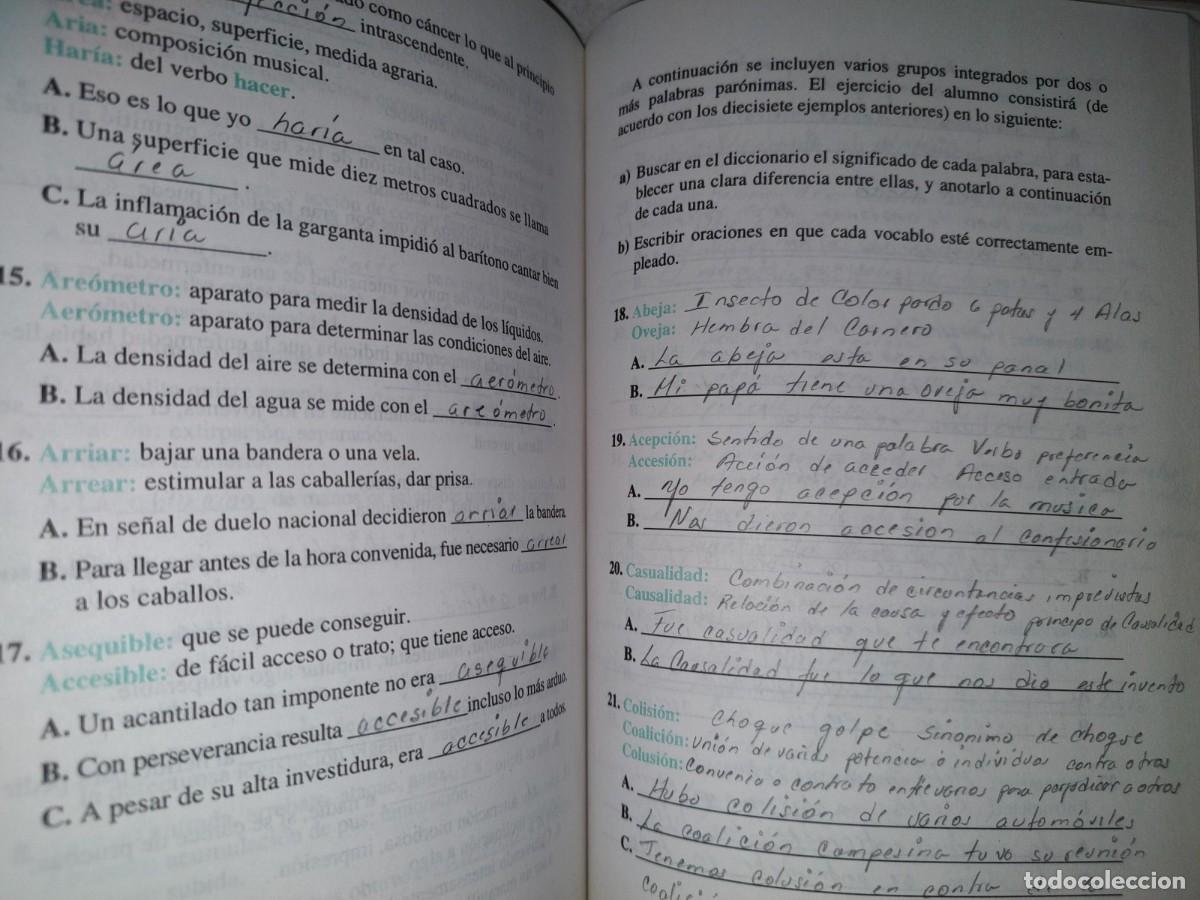 ado como cáncer lo que al principio
intrascendente.
espacio, superficie, medida agraria.
Aria: composición musical.
Haría: del verbo hacer.
A. Eso es lo que yo haría en tal caso.
B. Una superficie que mide diez metros cuadrados se llama
área.
C. La inflamación de la garganta impidió al barítono cantar bien
su aria.
15. Areómetro: aparato para medir la densidad de los líquidos.
Aerómetro: aparato para determinar las condiciones del aire.
A. La densidad del aire se determina con el aerómetro.
B. La densidad del agua se mide con el areómetro.
16. Arriar: bajar una bandera o una vela.
Arrear: estimular a las caballerías, dar prisa.
A. En señal de duelo nacional decidieron arriar la bandera.
B. Para llegar antes de la hora convenida, fue necesario arrear
a los caballos.
17. Asequible: que se puede conseguir.
Accesible: de fácil acceso o trato; que tiene acceso.
A. Un acantilado tan imponente no era asequible
B. Con perseverancia resulta accesible incluso lo más arduo.
C. A pesar de su alta investidura, era accesible a todos.
A continuación se incluyen varios grupos integrados por dos o
más palabras parónimas. El ejercicio del alumno consistirá (de
acuerdo con los diecisiete ejemplos anteriores) en lo siguiente:
a) Buscar en el diccionario el significado de cada palabra, para esta-
blecer una clara diferencia entre ellas, y anotarlo a continuación
de cada una.
b) Escribir oraciones en que cada vocablo esté correctamente em-
pleado.
18. Abeja: Insecto de Color pardo 6 patas y 4 Alas
Oveja: Hembra del Carnero
A. La abeja esta en su panal
B. Mi papá tiene una Oveja muy bonita
19. Acepción: Sentido de una palabra Verbo preferencia
Accesión: Acción de acceder Acceso entrada
A. Yo tengo acepción por la musica
B. Nos dieron accesion al confesionario
20. Casualidad: Combinación de circontancias imprevistas
Causalidad: Relación de la causa y efecto principio de Causalidad
A. Fue casualidad que te encontrara
B. La Causalidad fue lo que nos dio este invento
21. Colisión: choque golpe sinonimo de choque
Coalición: Unión de varias potencia o individuos contra otros
Colusión: Convenio o contrato entre varios para perjudicar a otros
A. Hubo colisión de varios automóviles
B. La coalición campesina tuvo su reunión
C. Tenemos colusión en contra
todocoleccion